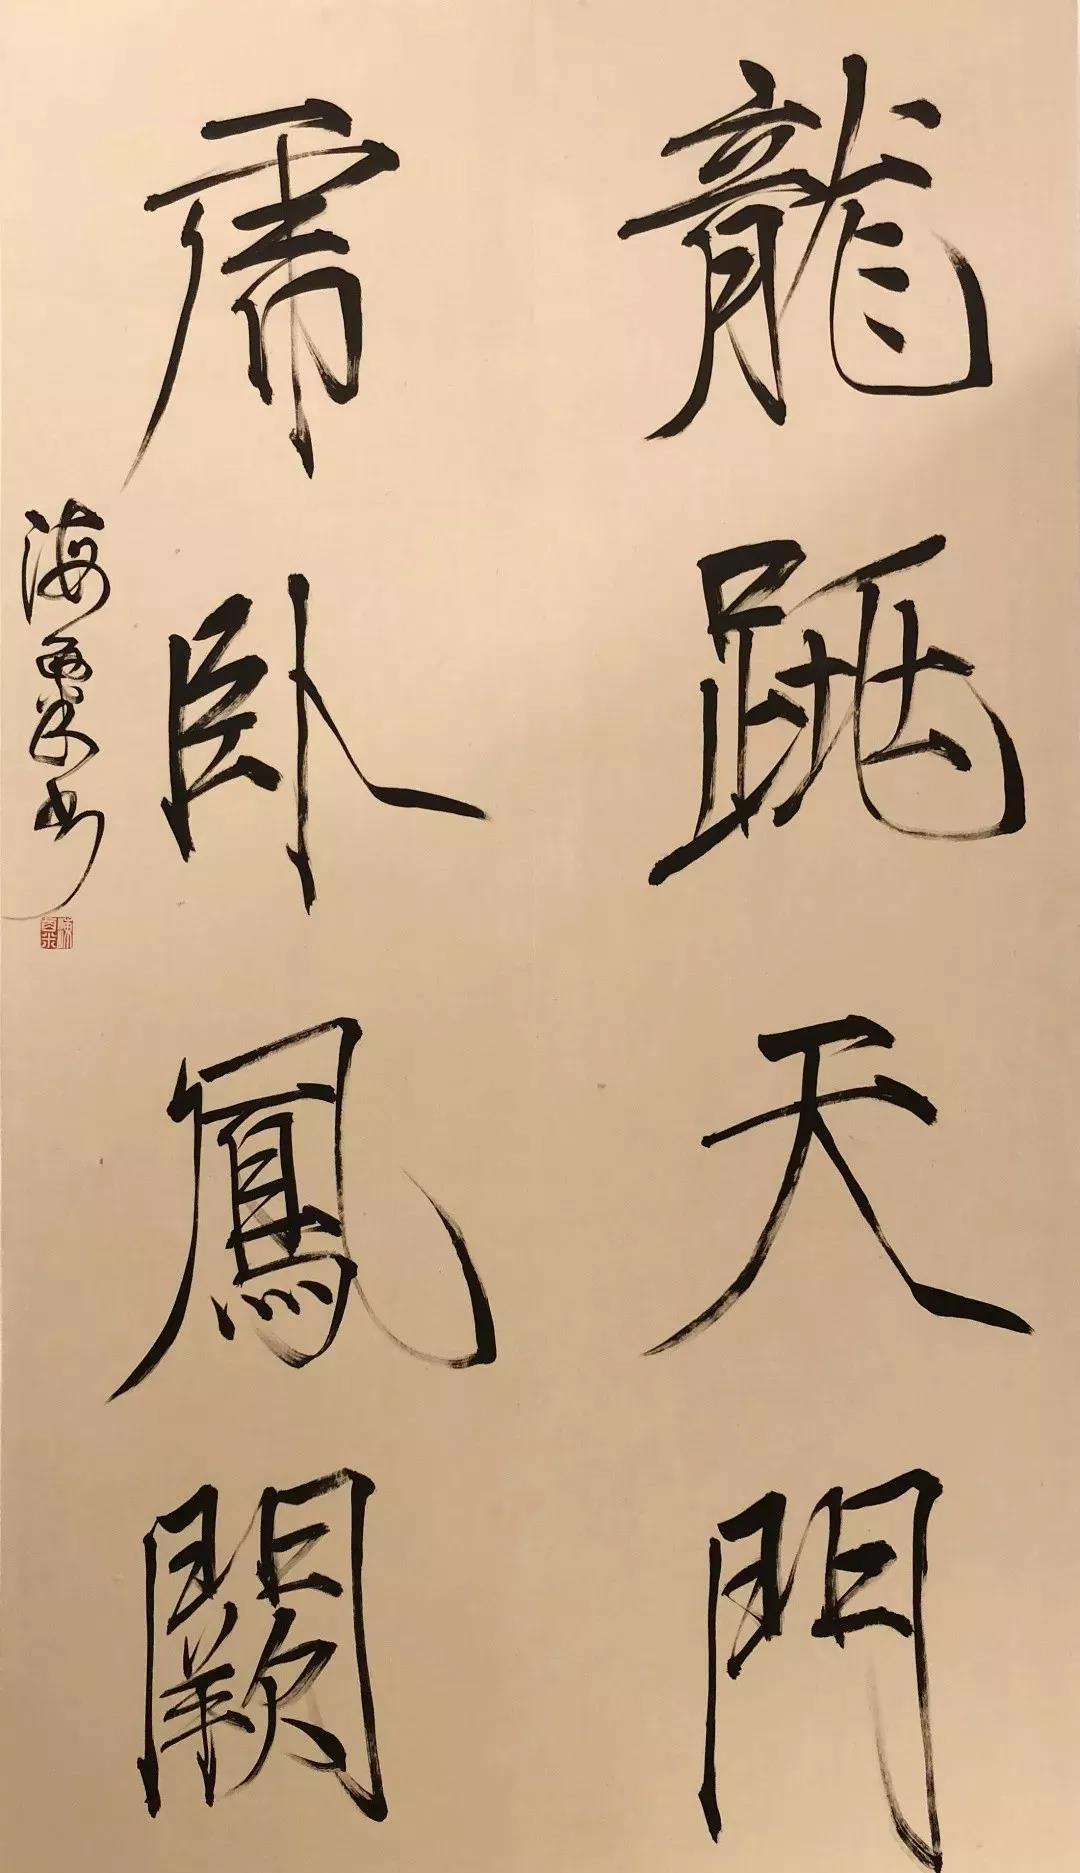 龍跳天門
虎卧鳳闕
海粟書